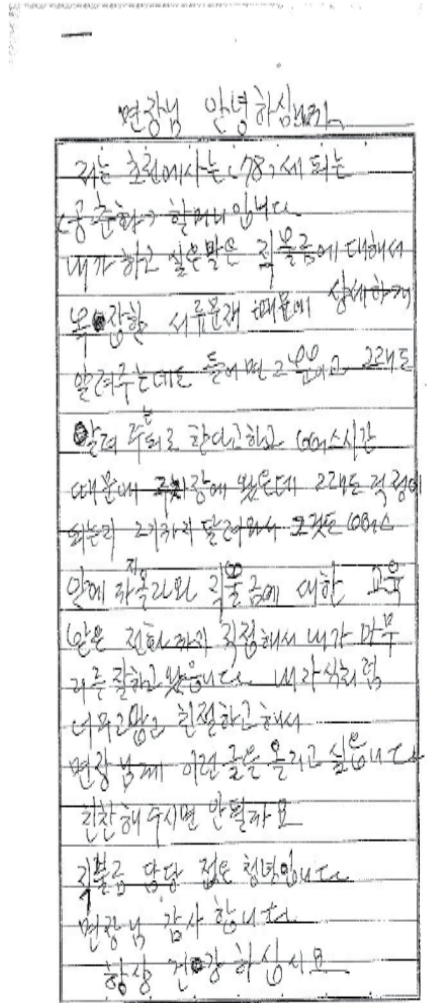 면장님 안녕하심니까
저는 초전에사는 (78)세 되는
(공춘화) 할머니입니다
내가 하고 싶은말은 직불금에 대해서
복잡한 서류문재 때문에 상세하게
알려주는데도 들어면 그뿐이고 그래도
알려 주는되로 한다고하고 bbs시간
때문에 장에 왔은데 그래도 걱정이
되는지 거기까지 달려와서 그것도 bbs
앞에 차 올라와 직불금에 대한 교육
받은 전화까지 걱정해서 내가 마무
리를 잘하고 왔습니다 내자식처럼
너무고맙고 친절하고해서
면장님께 이런글을 올리고 싶습니다
칭찬해주시면 안될까요
지불금 담당 젊은 청년입니다
면장님 감사합니다
항상 건강하십시요